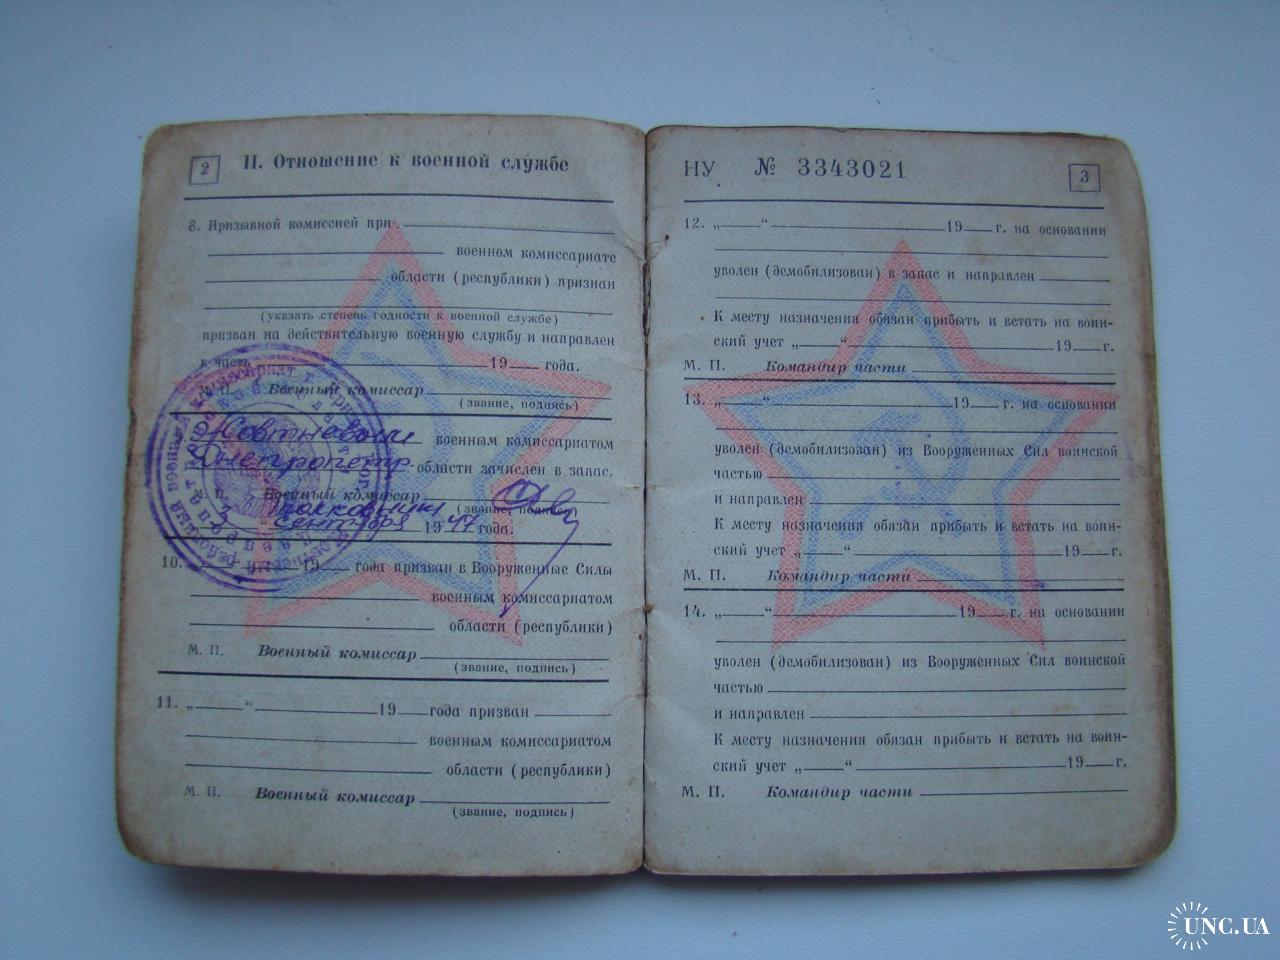 2
II. Отношение к военной службе
8. Призывной комиссией при
военном комиссариате
области (республики) признан
(указать степень годности к военной службе)
призван на действительную военную службу и направлен
в часть 19 года.
М. П. Военный комиссар
(звание, подпись)
Жовтневым военным комиссариатом
Днепропетр. области зачислен в запас.
М. П. Военный комиссар
полковник (звание, подпись)
сентября 1947 года.
10. „ “ 19 года призван в Вооруженные Силы
военным комиссариатом
области (республики)
М. П. Военный комиссар
(звание, подпись)
11. „ “ 19 года призван
военным комиссариатом
области (республики)
М. П. Военный комиссар
(звание, подпись)
НУ № 3343021
3
12. „ “ 19 г. на основании
уволен (демобилизован) в запас и направлен
К месту назначения обязан прибыть и встать на воин-
ский учет „ “ 19 г.
М. П. Командир части
13. „ “ 19 г. на основании
уволен (демобилизован) из Вооруженных Сил воинской
частью
и направлен
К месту назначения обязан прибыть и встать на воин-
ский учет „ “ 19 г.
М. П. Командир части
14. „ “ 19 г. на основании
уволен (демобилизован) из Вооруженных Сил воинской
частью
и направлен
К месту назначения обязан прибыть и встать на воин-
ский учет „ “ 19 г.
М. П. Командир части
UNC.UA